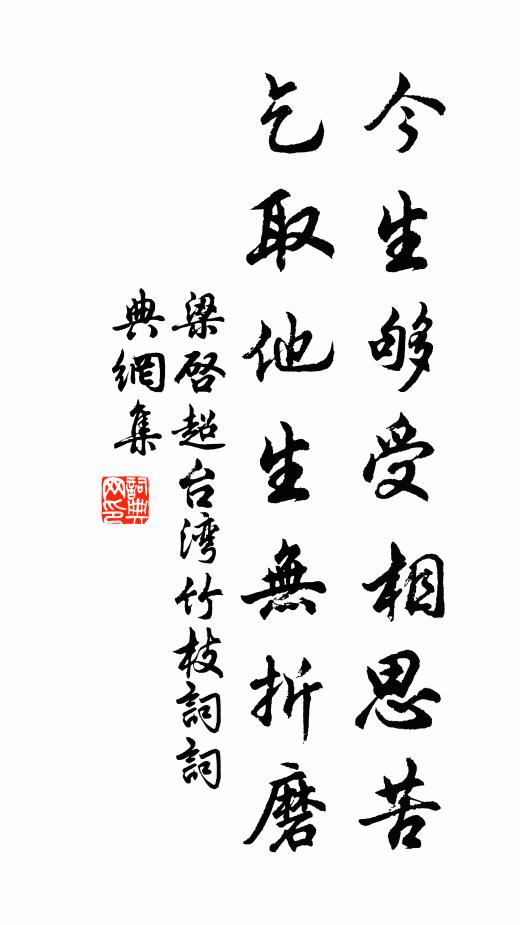 今生够受相思苦
乞取他生無折磨
梁启超台湾竹枝詞詞
典網集
詞典
网印